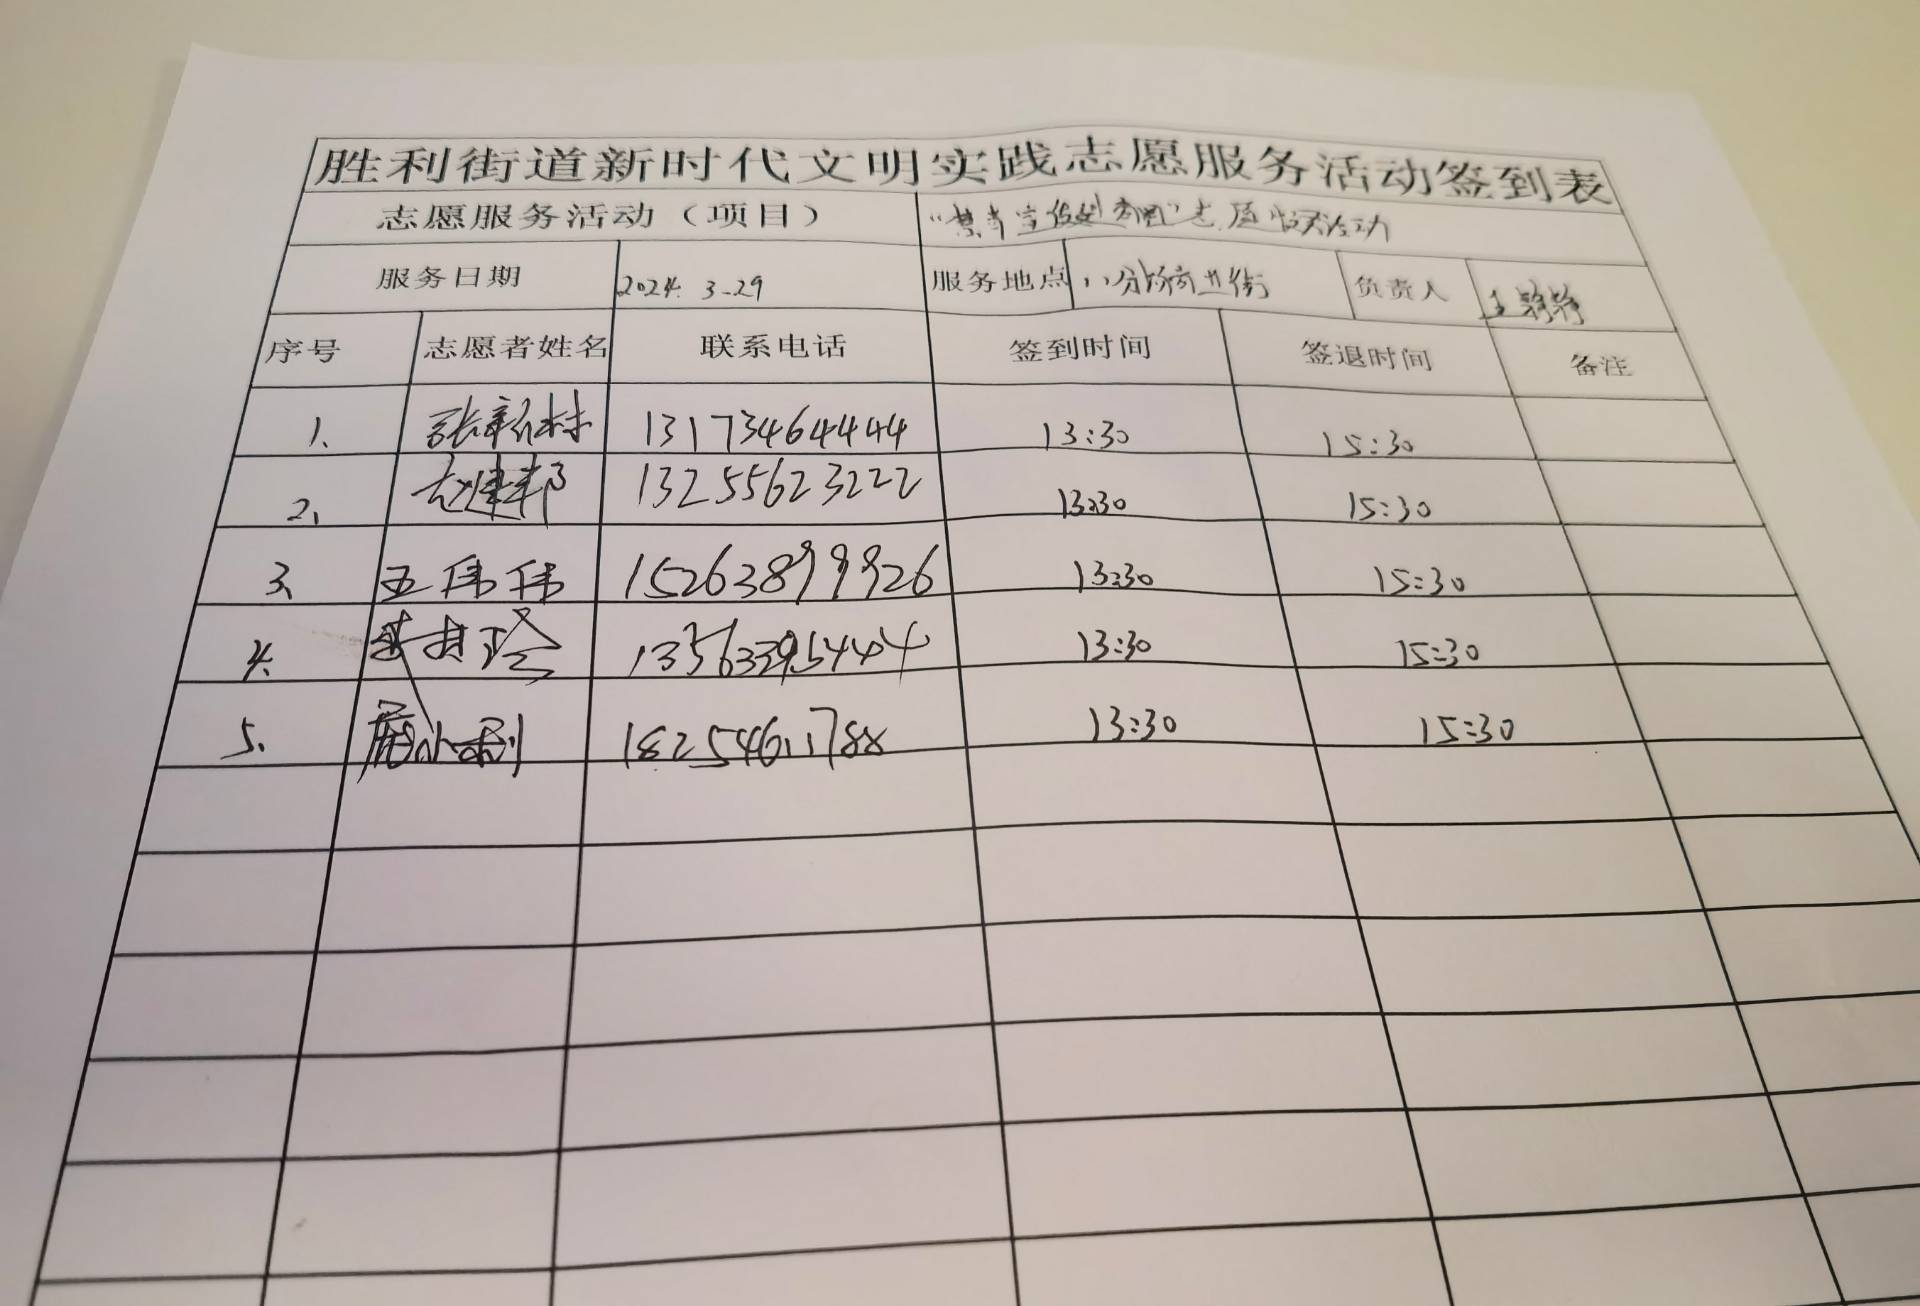 胜利街道新时代文明实践志愿服务活动签到表
志愿服务活动（项目） 志愿服务活动
服务日期 2024.3-29 服务地点 八分场商业街 负责人 王静静
序号 志愿者姓名 联系电话 签到时间 签退时间 备注
1、 张新林 13173464444 13:30 15:30
2、 赵建邦 13255623222 13:30 15:30
3、 王伟伟 15263899926 13:30 15:30
4、 玲 13563395444 13:30 15:30
5、 小利 18254611788 13:30 15:30